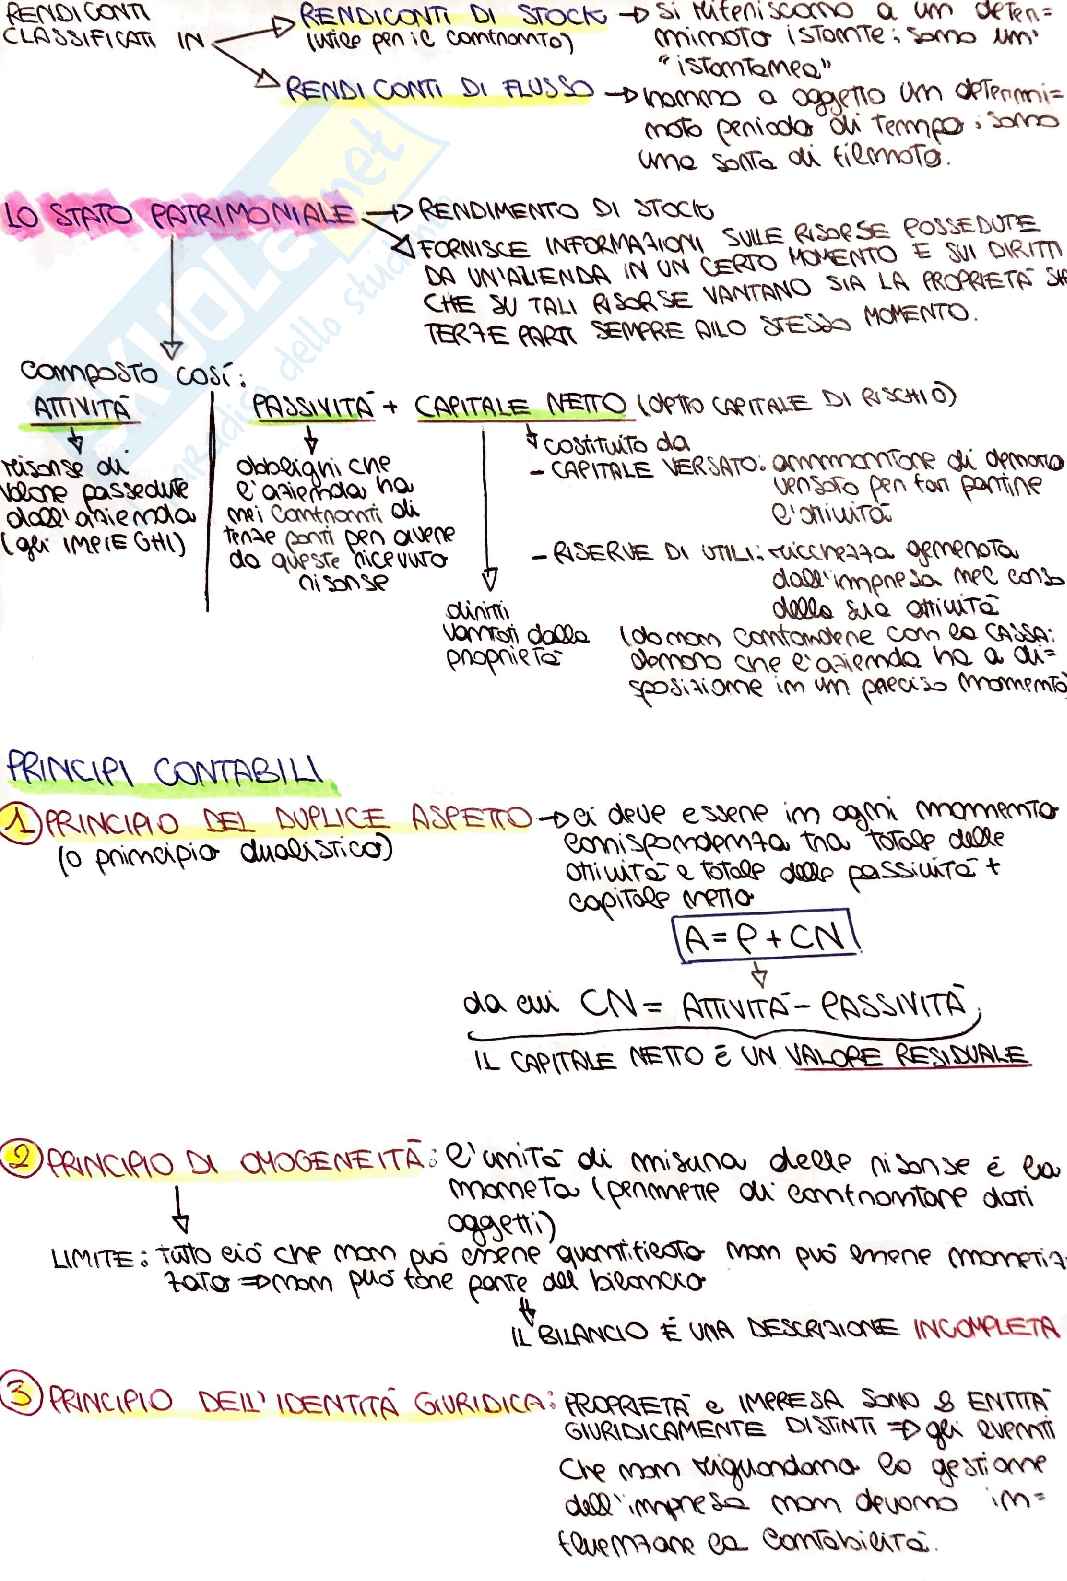 RENDICONTI
CLASSIFICATI IN
RENDICONTI DI STOCK → si riferiscono a un deter=
(utile per il confronto) minato istante; sono un'
"istantanea"
RENDICONTI DI FLUSSO → hanno a oggetto un determi=
nato periodo di tempo; sono
una sorta di filmato.
LO STATO PATRIMONIALE → RENDIMENTO DI STOCK
FORNISCE INFORMAZIONI SULLE RISORSE POSSEDUTE
DA UN'AZIENDA IN UN CERTO MOMENTO E SUI DIRITTI
CHE SU TALI RISORSE VANTANO SIA LA PROPRIETÀ SIA
TERZE PARTI SEMPRE ALLO STESSO MOMENTO.
composto così:
ATTIVITÀ
risorse di
valore possedute
dall'azienda
(gli IMPIEGHI)
PASSIVITÀ + CAPITALE NETTO (DETTO CAPITALE DI RISCHIO)
obblighi che
l'azienda ha
nei confronti di
terze parti per avere
da queste ricevuto
risorse
diritti
vantati dalla
proprietà
costituito da
- CAPITALE VERSATO: ammontare di denaro
versato per far partire
l'attività
- RISERVE DI UTILI: ricchezza generata
dall'impresa nel corso
della sua attività
(da non confondere con la CASSA:
denaro che l'azienda ha a di=
sposizione in un preciso momento)
PRINCIPI CONTABILI
1 PRINCIPIO DEL DUPLICE ASPETTO → ci deve essere in ogni momento
(o principio dualistico) corrispondenza tra totale delle
attività e totale delle passività +
capitale netto
A = P + CN
da cui CN = ATTIVITÀ - PASSIVITÀ
IL CAPITALE NETTO È UN VALORE RESIDUALE
2 PRINCIPIO DI OMOGENEITÀ: l'unità di misura delle risorse è la
moneta (permette di confrontare dati
oggetti)
LIMITE: tutto ciò che non può essere quantificato non può essere monetiz-
zato ⇒ non può fare parte del bilancio
IL BILANCIO È UNA DESCRIZIONE INCOMPLETA
3 PRINCIPIO DELL'IDENTITÀ GIURIDICA: PROPRIETÀ e IMPRESA SONO 2 ENTITÀ
GIURIDICAMENTE DISTINTI ⇒ gli eventi
che non riguardano la gestione
dell'impresa non devono in=
fluenzare la contabilità.
SKUOLA.net
il paradiso dello studente